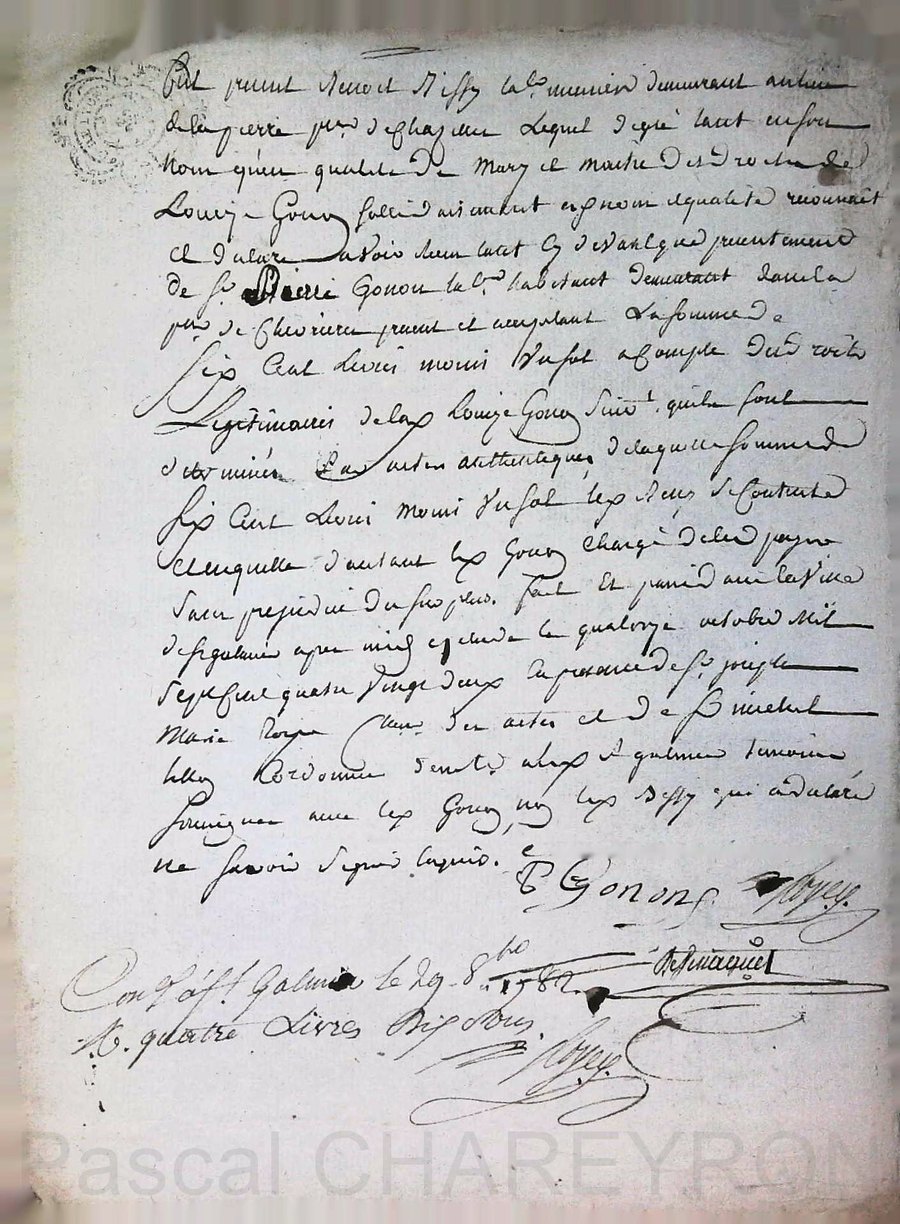 fut present Benoit Bissy lab.r meunier demeurant au lieu
de la pierre p.sse de Chazelle Lequel de gré tant en son
nom qu'en qualité de mary et maitre des droits de
Louize Gonon solidairement esd nom et qualité reconnait
et declare avoir recu tant cy devant que presentement
de S.r Pierre Gonon lab.r habitant demeurant dans la
p.sse de Chevrieres present et acceptant La somme de
Six Cent Livres moins Un sol a Compte des droits
Legitimaires de lad Louize Gonon quils sont
determinés Par actes authentiques, de laquelle somme de
Six Cent Livres moins Un sol led se Contente
et en quitte d'autant led Gonon Chargé de les payer
Sans prejudice du surplus. fait Et passé dans la Ville
de S.t galmier apres midy le quatorze octobre Mil
Sept Cent quatre Vingt deux En presence de S.r joseph
Marie Royer des actes et de
Cordonnier dem.t aud S.t galmier temoins
Soussignes avec led Gonon, non led Bissy qui a declaré
ne savoir signer enquis.
P Gonon Royer
Con.lé à S.t Galmier le 29 8.bre 1782.
R. quatre Livres Dix Sous.
Royer